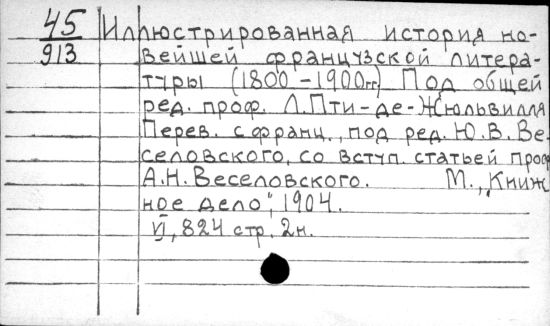 45 Иллюстрированная история но-
913 вейшей французской литера-
туры (1800-1900гг) Под общей
ред. проф. Л.Пти-де-Жюльвилля
Перев. с франц., под ред. Ю.В.Ве-
селовского, со вступ. статьей проф
А.Н.Веселовского. М., „Книж-
ное дело", 1904.
VI, 824 стр. 2н.